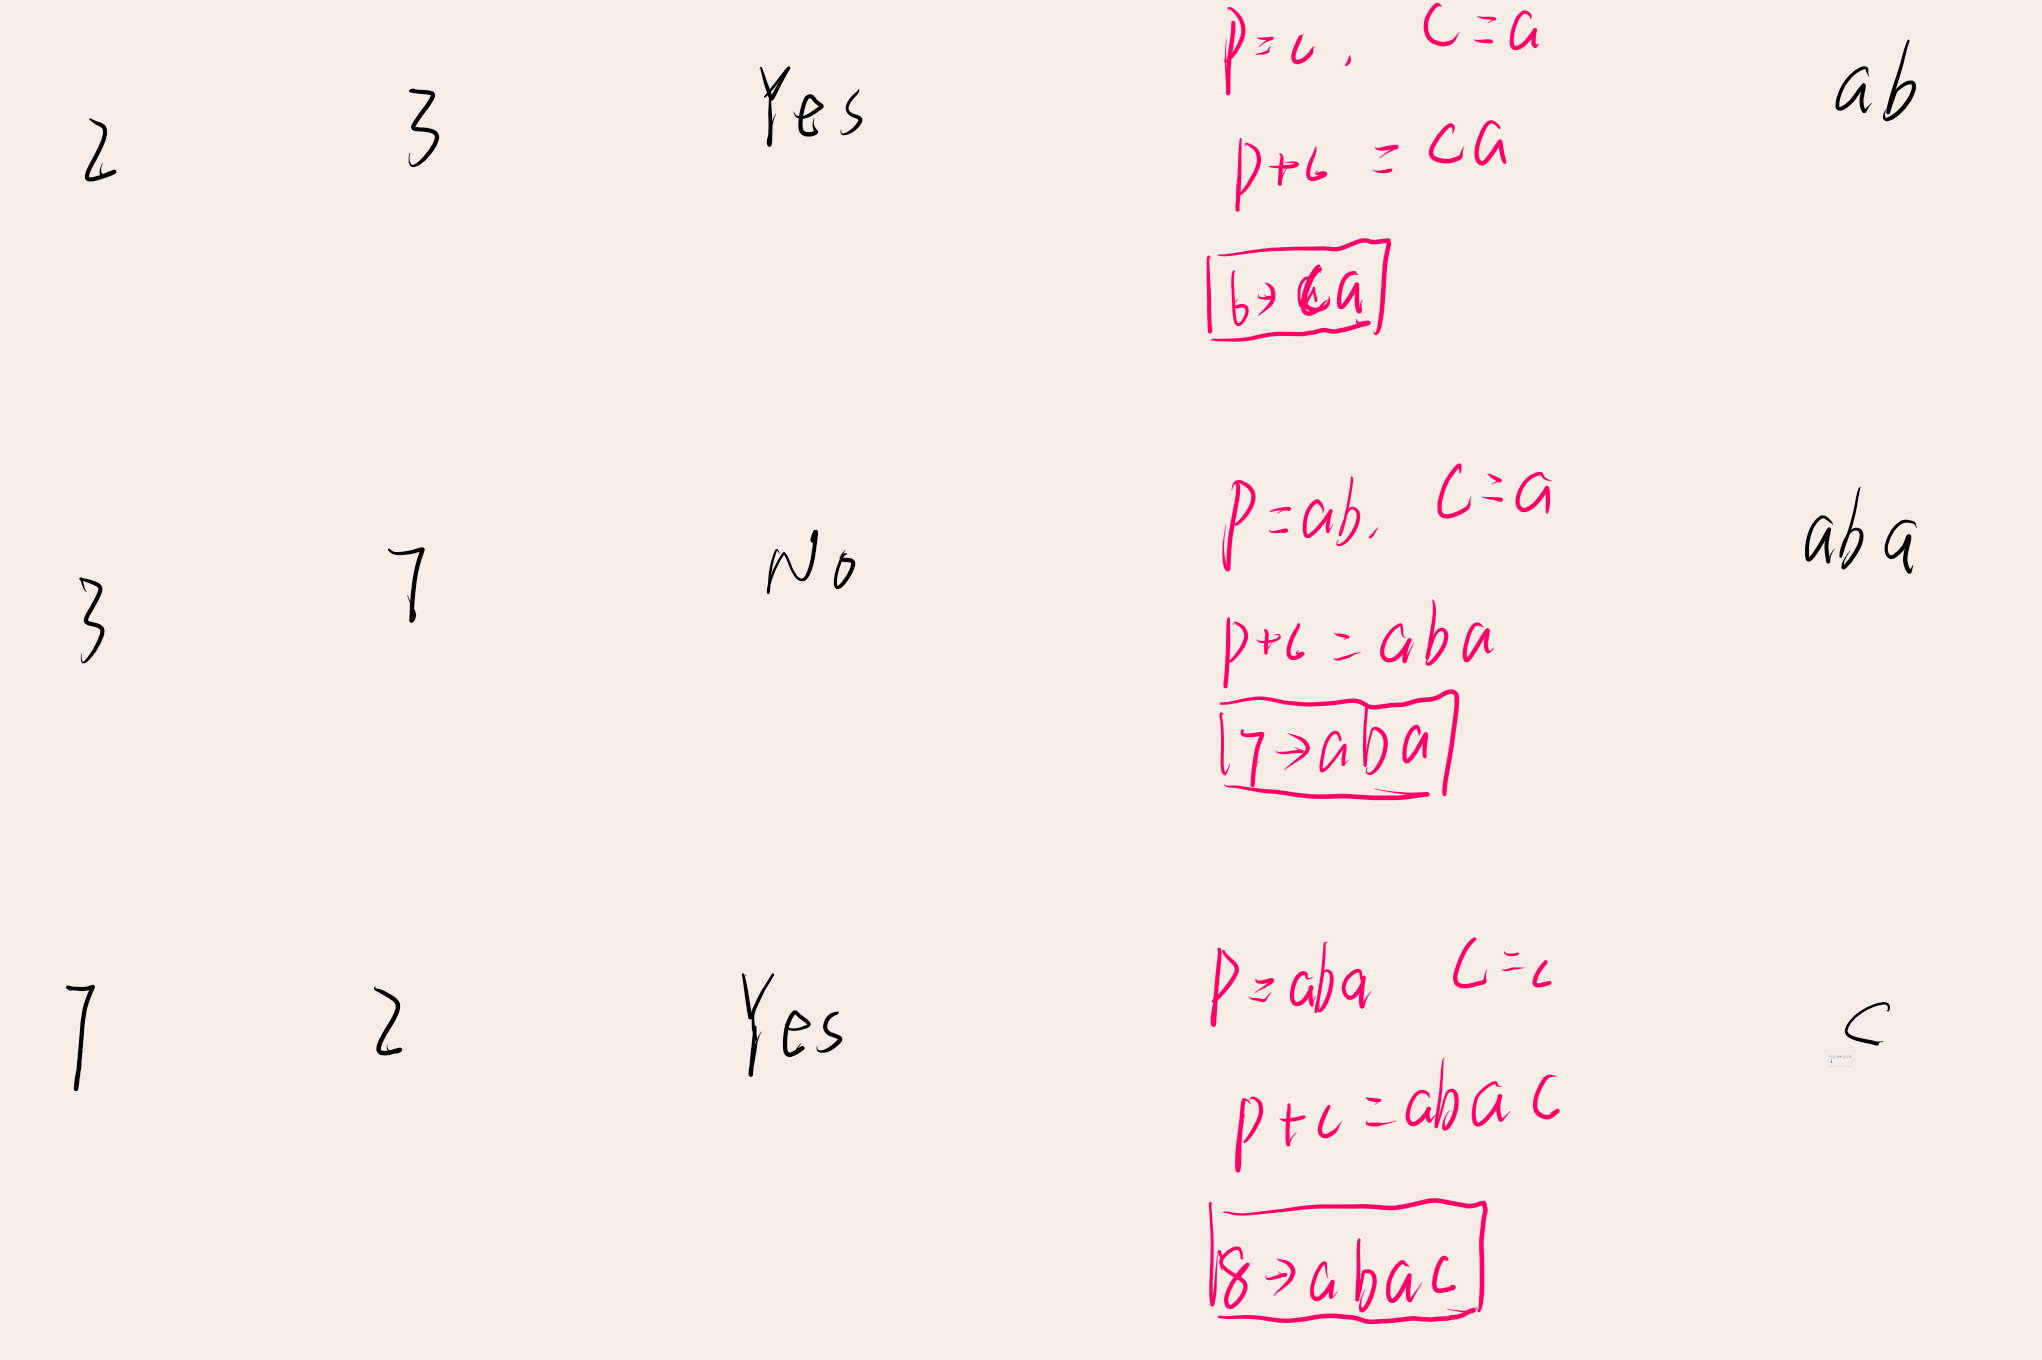 2 3 Yes p=c, c=a ab
p+c = ca
6→ca
3 7 No p=ab, c=a aba
p+c = aba
7→aba
7 2 Yes p=aba c=c c
p+c=abac
8→abac